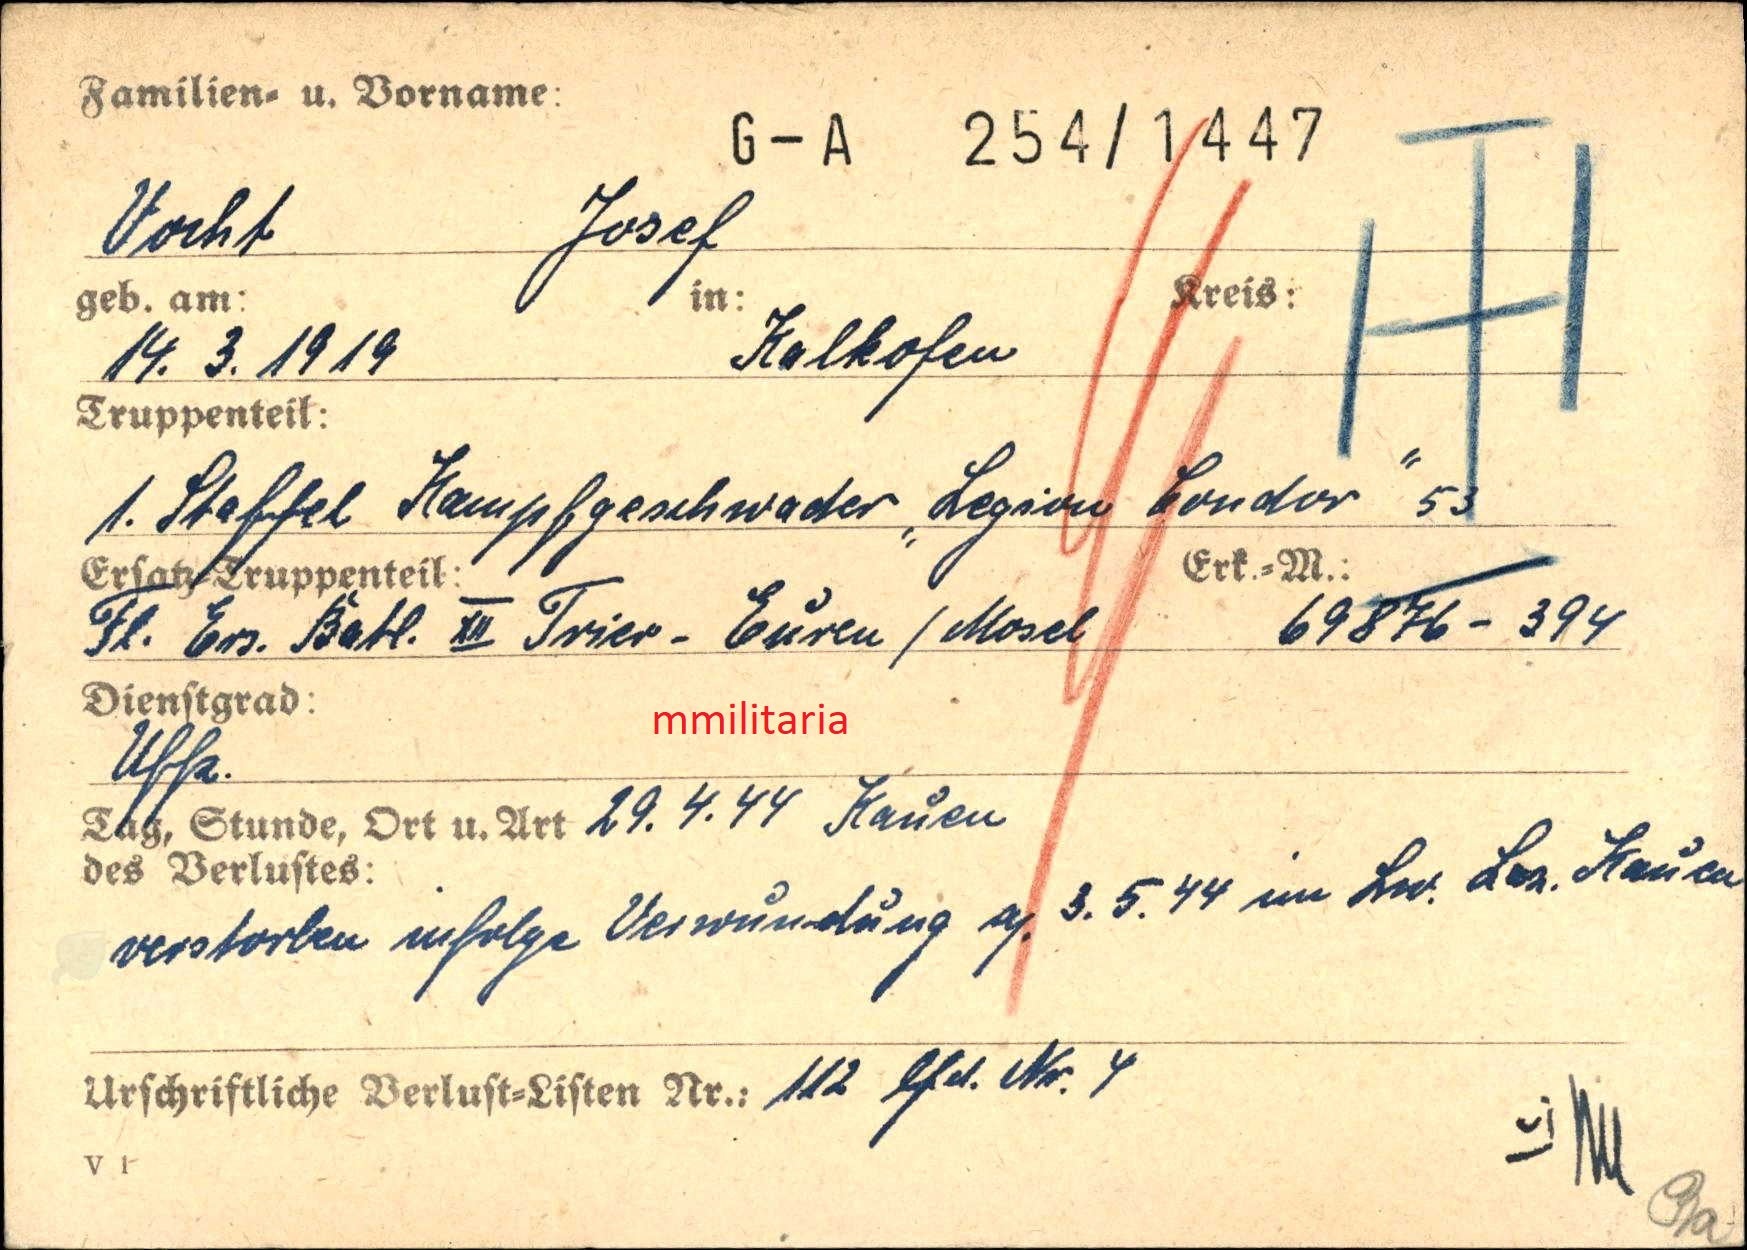 Familien- u. Vorname:
G-A 254/1447
Vocht Josef
geb. am: in: Kreis:
14. 3. 1919 Kalkofen
Truppenteil:
1. Staffel Kampfgeschwader „Legion Condor" 53
Ersatz-Truppenteil: Erk.-M.:
Fl. Ers. Batl. XII Trier - Euren / Mosel 69876 - 394
Dienstgrad:
Uffz.
mmilitaria
Tag, Stunde, Ort u. Art 29. 4. 44 Kauen
des Verlustes:
verstorben infolge Verwundung a/. 3. 5. 44 im Lw. Laz. Kauen
Urschriftliche Verlust-Listen Nr.: 112 lfd. Nr. 4
V 1